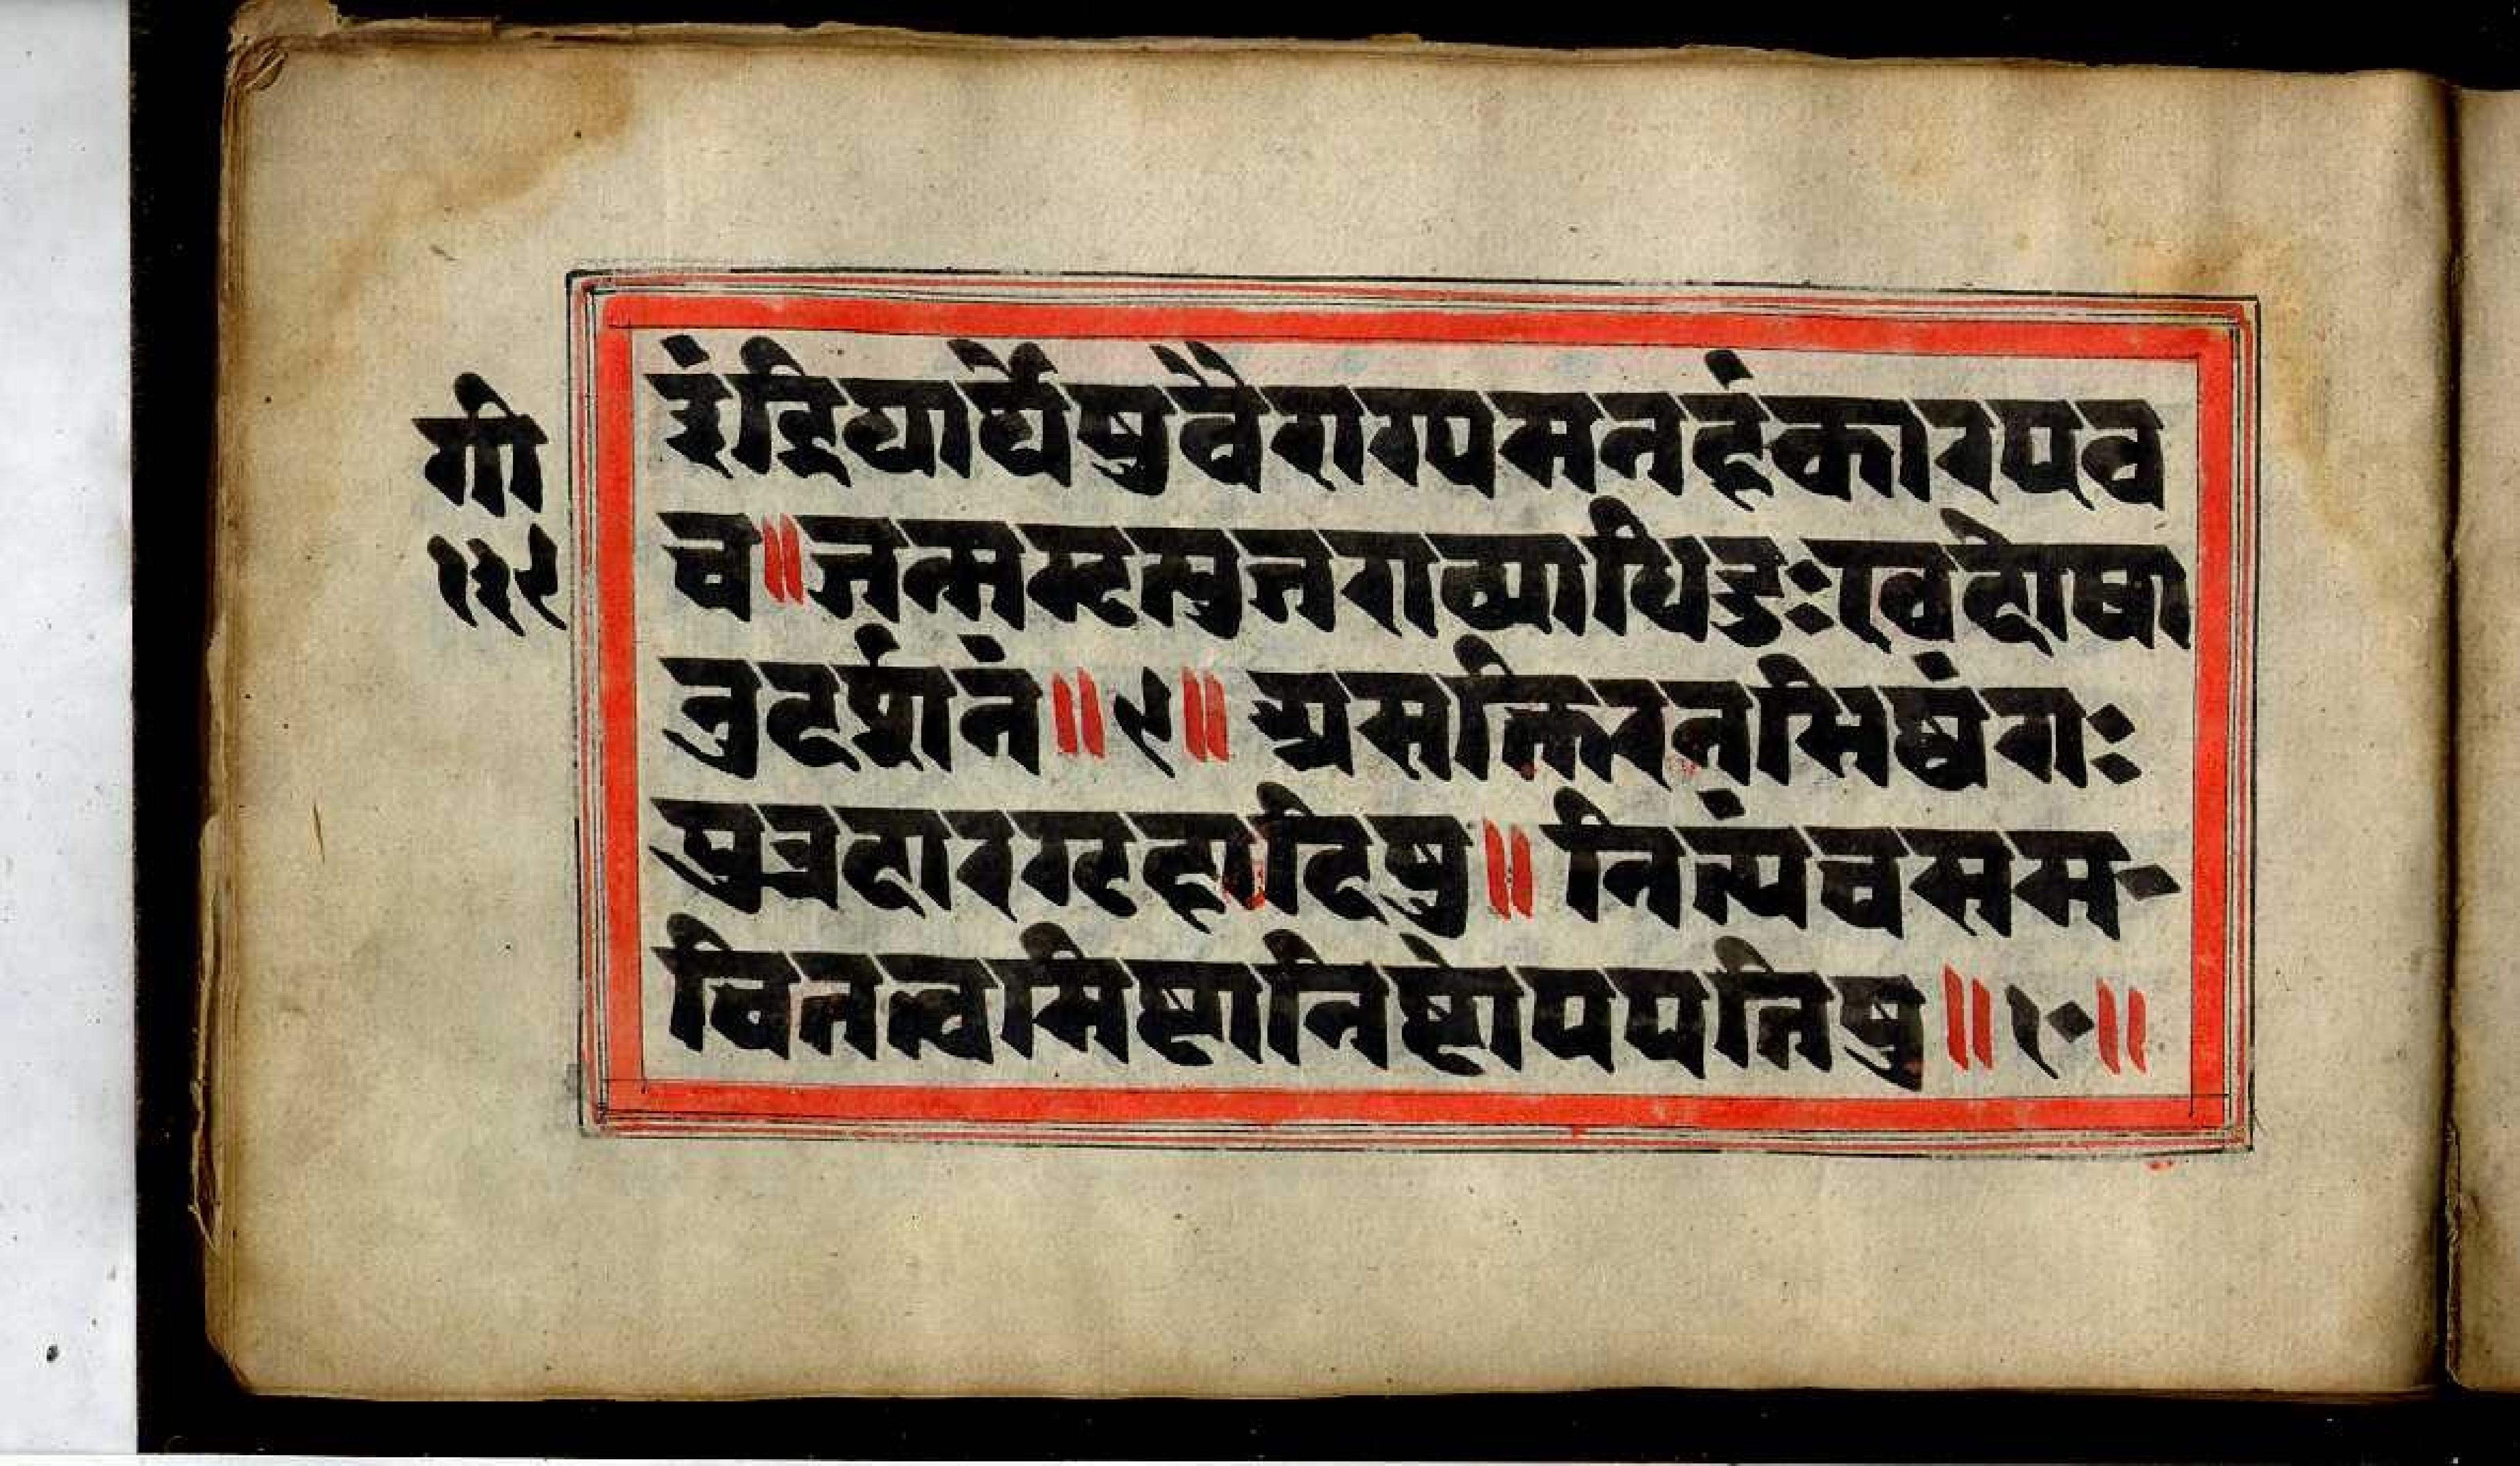 गी
१३९
इंद्रियार्थेषुवैराग्यमनहंकारएव
च॥जन्ममृत्युजराव्याधिदुःखदोषा
नुदर्शनं॥९॥असक्तिरनभिष्वंगः
पुत्रदारगृहादिषु॥नित्यंचसम-
चित्तत्वमिष्टानिष्टोपपत्तिषु॥१०॥